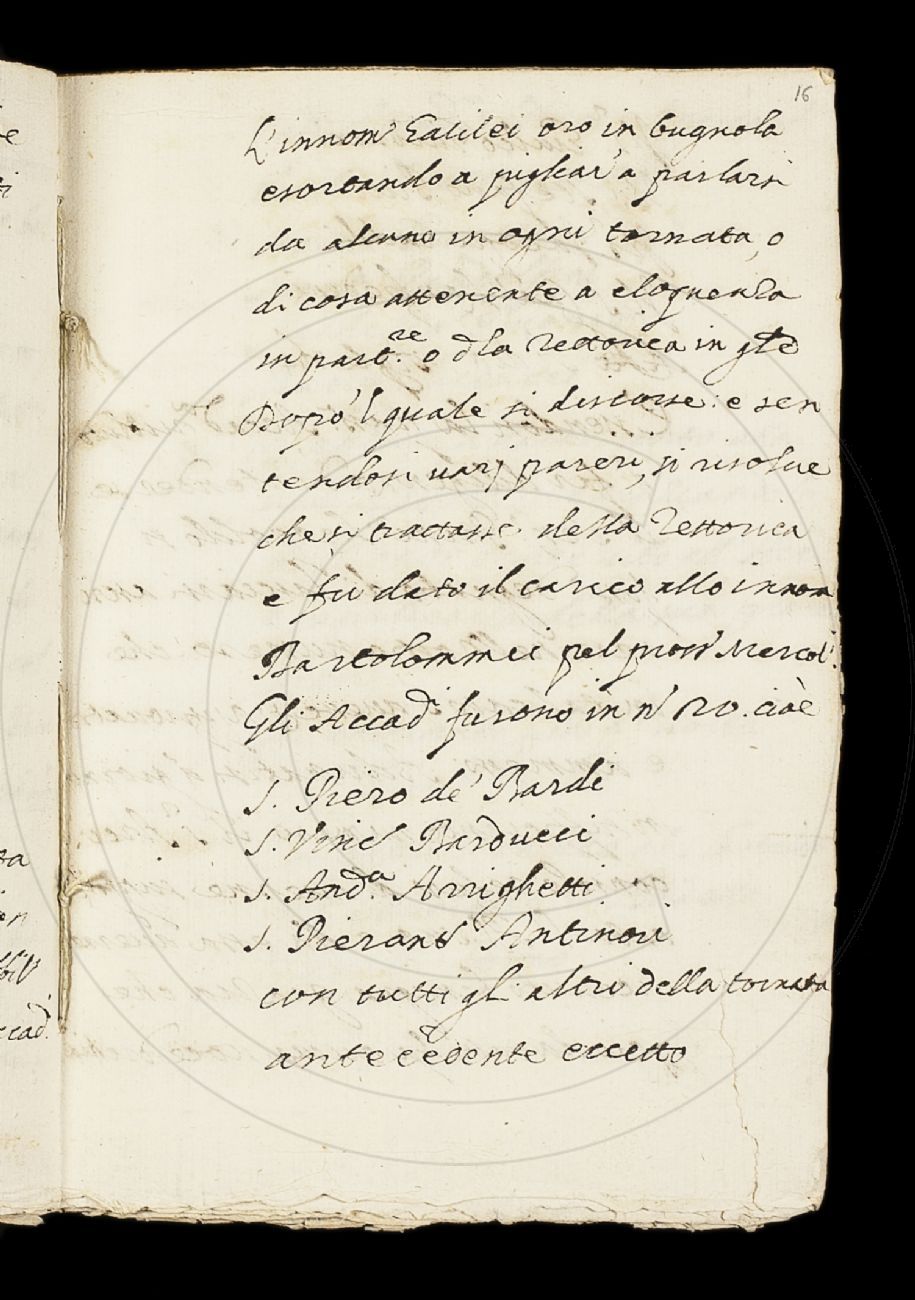 16
L'innom' Galilei orò in bugnola
esortando a pigliar' a parlarsi
da alcuno in ogni tornata, o
di cosa attenente a eloquenza
in part.re o d̄la Rettorica in gl̄e
Dopo 'l quale si discorse: e sen
tendosi varj pareri, si risolue
che si trattasse della Rettorica
e fu dato il carico allo innom
Bartolommei pel pross' Mercol'.
Gli Accad furono in n' 20. cioè
S. Piero de' Bardi
S. Vinc Barducci
S. And.a Arrighetti
S. Pierant Antinori
con tutti gli altri della tornata
antecedente eccetto